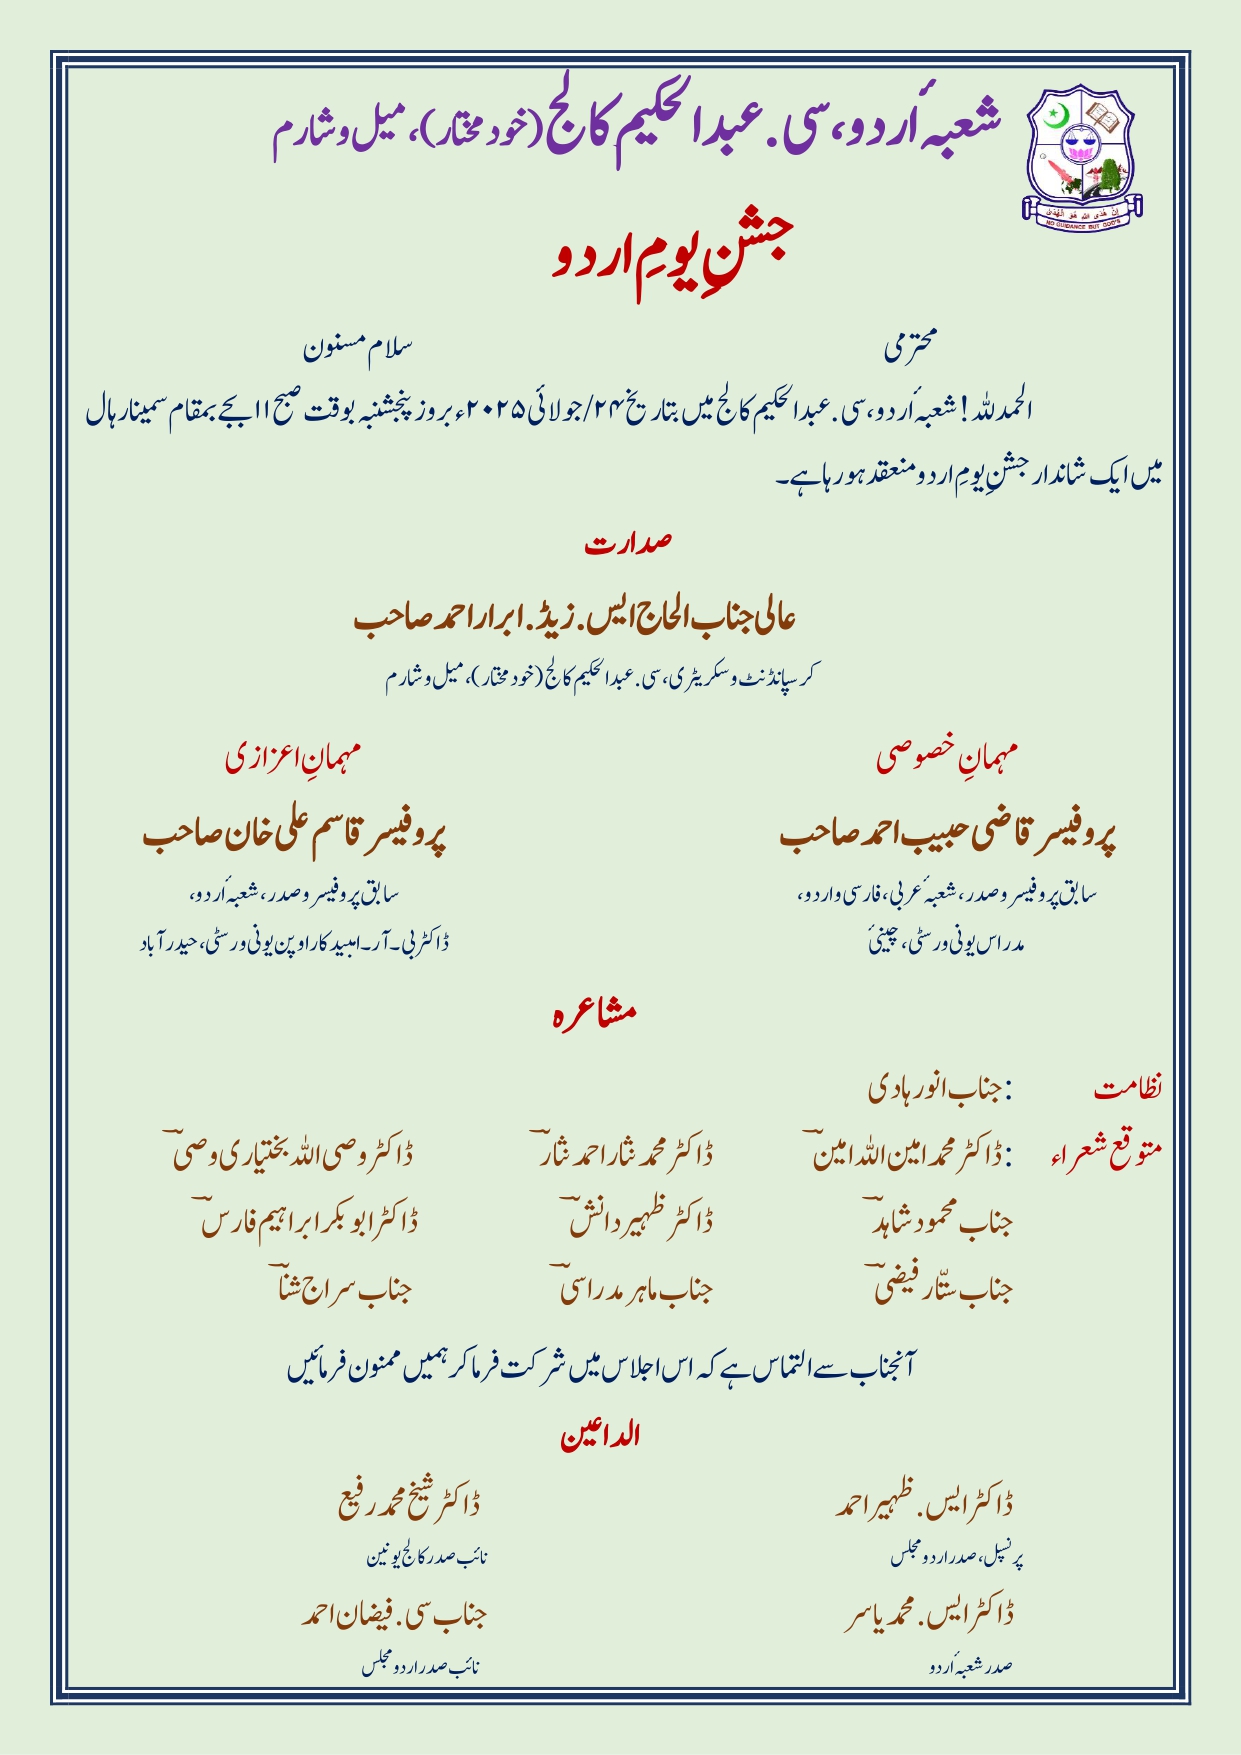 شعبہ اُردو، سی. عبدالحکیم کالج (خود مختار)، میل وشارم
اِنَّ هُدَى اللهِ هُوَ الْهُدٰى
NO GUIDANCE BUT GOD'S
جشنِ یومِ اردو
محترمی سلام مسنون
الحمدللہ! شعبہ اُردو، سی. عبدالحکیم کالج میں بتاریخ ۲۴/جولائی ۲۰۲۵ء بروز پنجشنبہ بوقت صبح ۱۱ بجے بمقام سمینار ہال
میں ایک شاندار جشنِ یومِ اردو منعقد ہو رہا ہے۔
صدارت
عالی جناب الحاج ایس. زیڈ. ابرار احمد صاحب
کرسپانڈنٹ و سکریٹری، سی. عبدالحکیم کالج (خود مختار)، میل وشارم
مہمانِ خصوصی مہمانِ اعزازی
پروفیسر قاضی حبیب احمد صاحب پروفیسر قاسم علی خان صاحب
سابق پروفیسر و صدر، شعبہ عربی، فارسی و اردو، سابق پروفیسر و صدر، شعبہ اُردو،
مدراس یونی ورسٹی، چینئی ڈاکٹر بی۔ آر۔ امبیدکار اوپن یونی ورسٹی، حیدرآباد
مشاعرہ
نظامت : جناب انور ہادی
متوقع شعراء : ڈاکٹر محمد امین اللہ امینؔ ڈاکٹر محمد نثار احمد نثارؔ ڈاکٹر وصی اللہ بختیاری وصیؔ
جناب محمود شاہدؔ ڈاکٹر ظہیر دانشؔ ڈاکٹر ابو بکر ابراہیم فارسؔ
جناب ستّار فیضیؔ جناب ماہر مدراسیؔ جناب سراج شناؔ
آنجناب سے التماس ہے کہ اس اجلاس میں شرکت فرما کر ہمیں ممنون فرمائیں
الداعین
ڈاکٹر ایس. ظہیر احمد ڈاکٹر شیخ محمد رفیع
پرنسپل، صدر اردو مجلس نائب صدر کالج یونین
ڈاکٹر ایس. محمد یاسر جناب سی. فیضان احمد
صدر شعبہ اُردو نائب صدر اردو مجلس